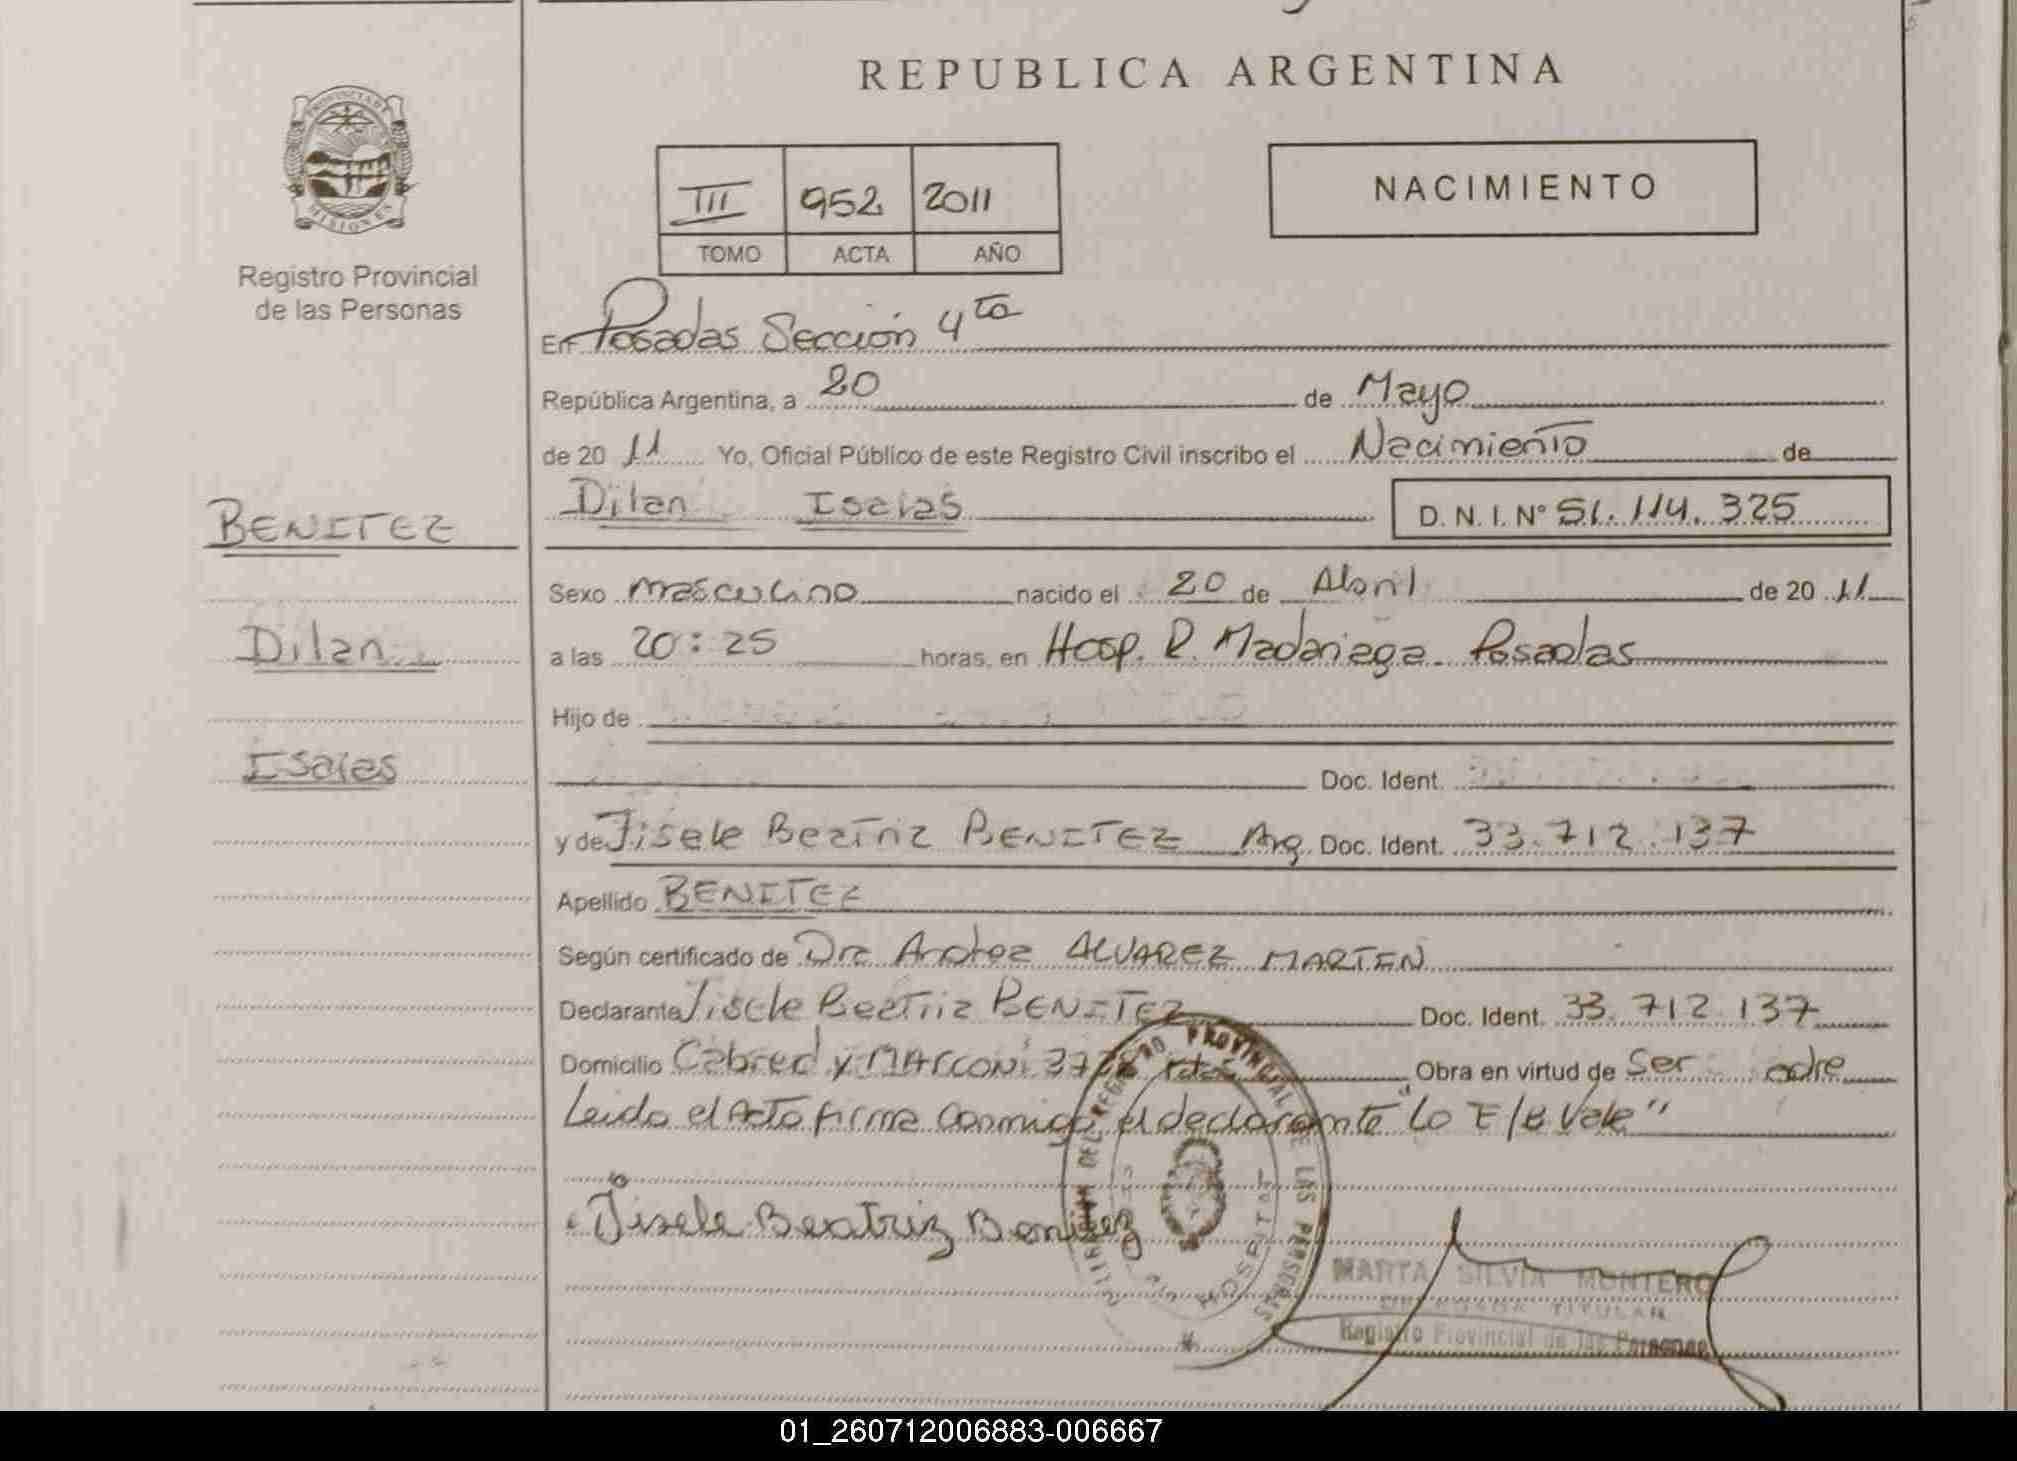 REPUBLICA ARGENTINA
PROVINCIA DE
MISIONES
Registro Provincial
de las Personas
III 952 2011
TOMO ACTA AÑO
NACIMIENTO
En Posadas Sección 4ta
República Argentina, a 20 de Mayo
de 20 11 Yo, Oficial Público de este Registro Civil inscribo el Nacimiento de
Dilan Isaias D. N. I. N° 51.114.325
BENITEZ
Dilan
Isaias
Sexo masculino nacido el 20 de Abril de 20 11
a las 20:25 horas, en Hosp. R. Madariaga Posadas
Hijo de
Doc. Ident.
y de Jisele Beatriz BENITEZ Arg. Doc. Ident. 33.712.137
Apellido BENITEZ
Según certificado de Dra ALVAREZ MARTEN
Declarante Jisele Beatriz BENITEZ Doc. Ident. 33.712.137
Domicilio Cabred y MARCONI Obra en virtud de Ser adre
Leido el Acto firma conmigo el declarante "Lo E/B Vale"
Jisele Beatriz Benitez
DEL REGISTRO PROVINCIAL DE LAS PERSONAS
HOSPITAL
MARTA SILVIA MONTERO
DELEGADA TITULAR
Registro Provincial de las Personas
01_260712006883-006667